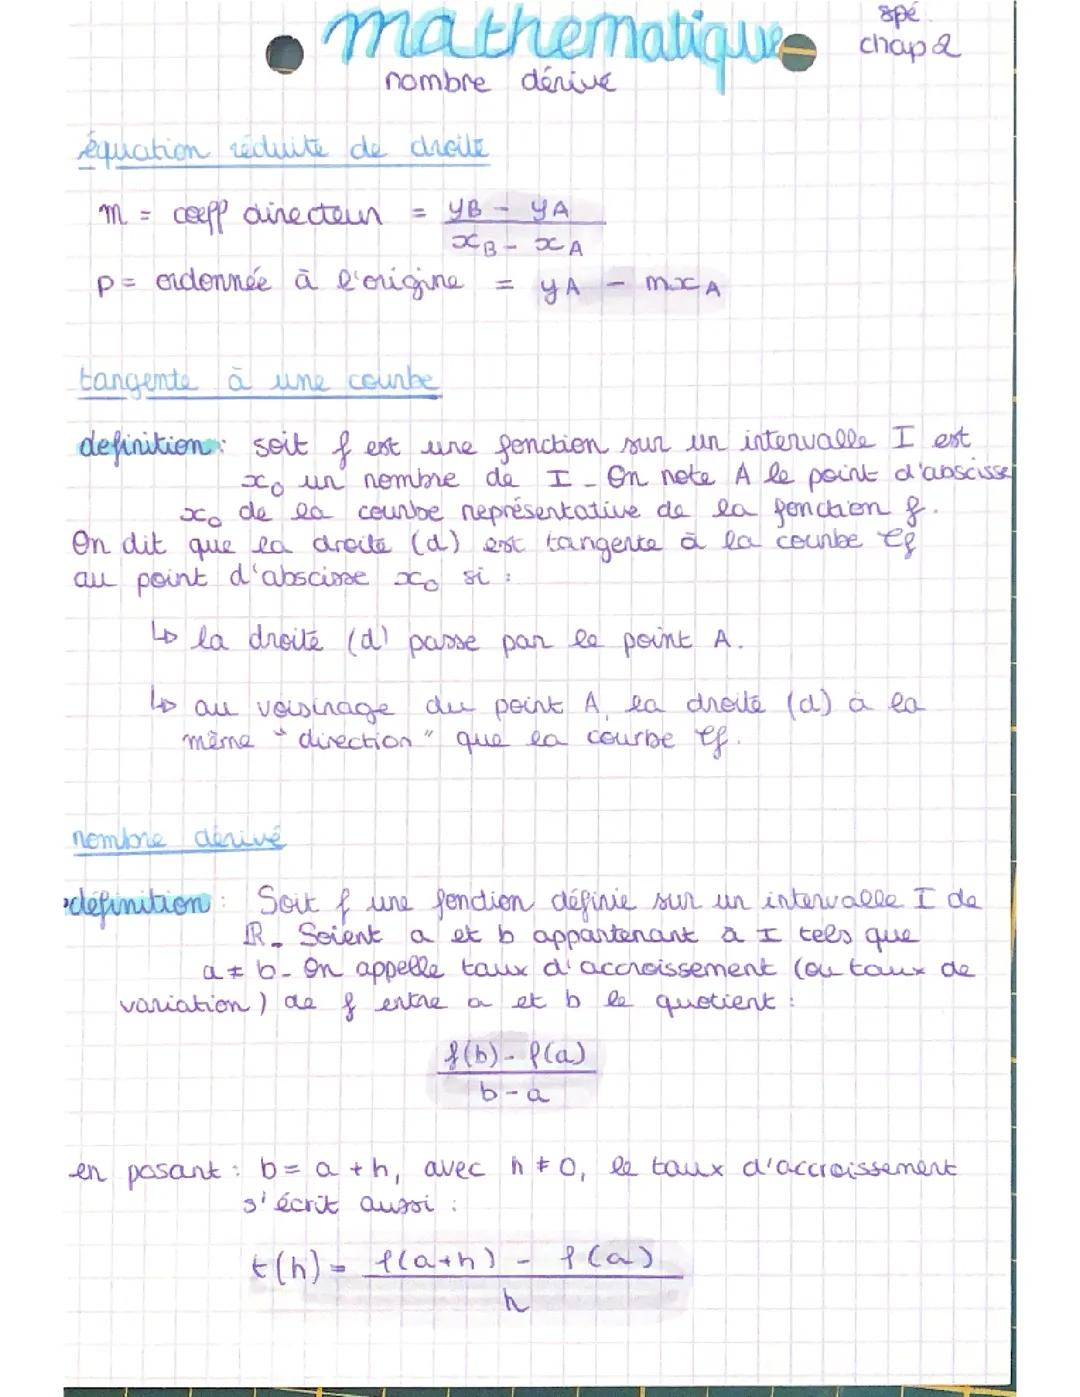 mathematique
spé
chap 2
nombre dérivé
équation réduite de droite
m = coeff directeur = yB - yA / xB - xA
p = ordonnée à l'origine = yA - mxA
tangente à une courbe
definition : soit f est une fonction sur un intervalle I est
x₀ un nombre de I - On note A le point d'abscisse
x₀ de la courbe représentative de la fonction f.
On dit que la droite (d) est tangente à la courbe Cf
au point d'abscisse x₀ si :
↳ la droite (d) passe par le point A.
↳ au voisinage du point A, la droite (d) à la
même "direction" que la courbe Cf.
nombre dérivé
définition : Soit f une fonction définie sur un intervalle I de
ℝ. Soient a et b appartenant à I tels que
a ≠ b - On appelle taux d'accroissement (ou taux de
variation) de f entre a et b le quotient :
f(b) - f(a)
b - a
en posant : b = a + h, avec h ≠ 0, le taux d'accroissement
s'écrit aussi :
t(h) = f(a+h) - f(a)
h